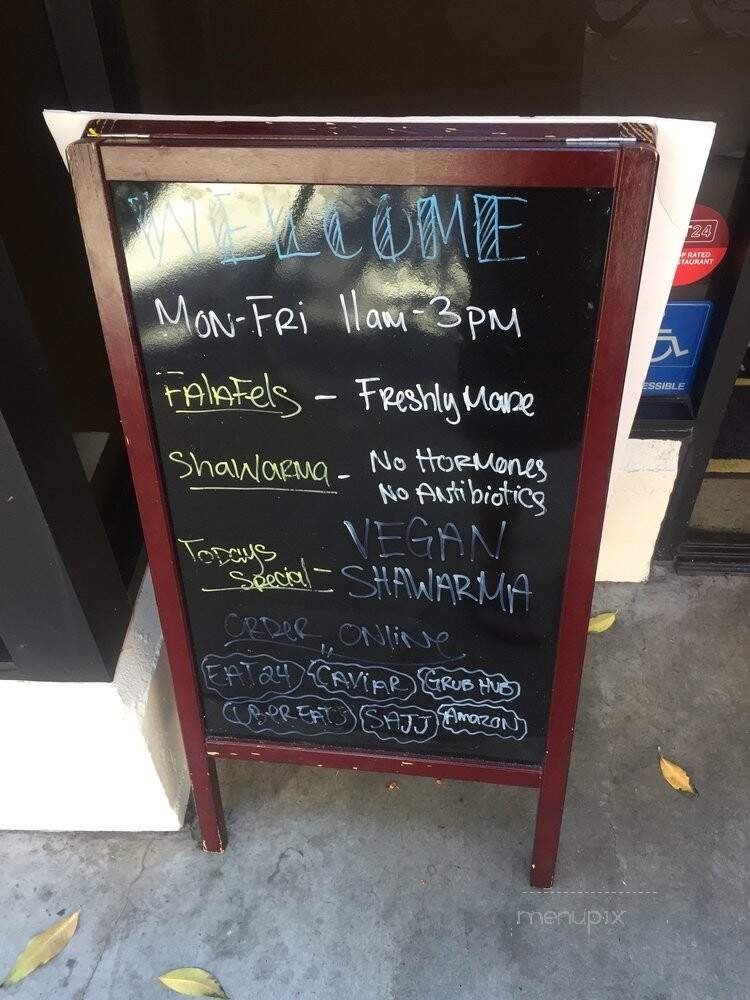 WELCOME
Mon-Fri 11am-3pm
Falafels - Freshly Made
Shawarma - No Hormones
No Antibiotics
Todays Special - VEGAN SHAWARMA
Order Online
EAT24 CAVIAR GRUB HUB
UBER EATS SAJJ Amazon
24
RATED
ESSIBLE
menupix